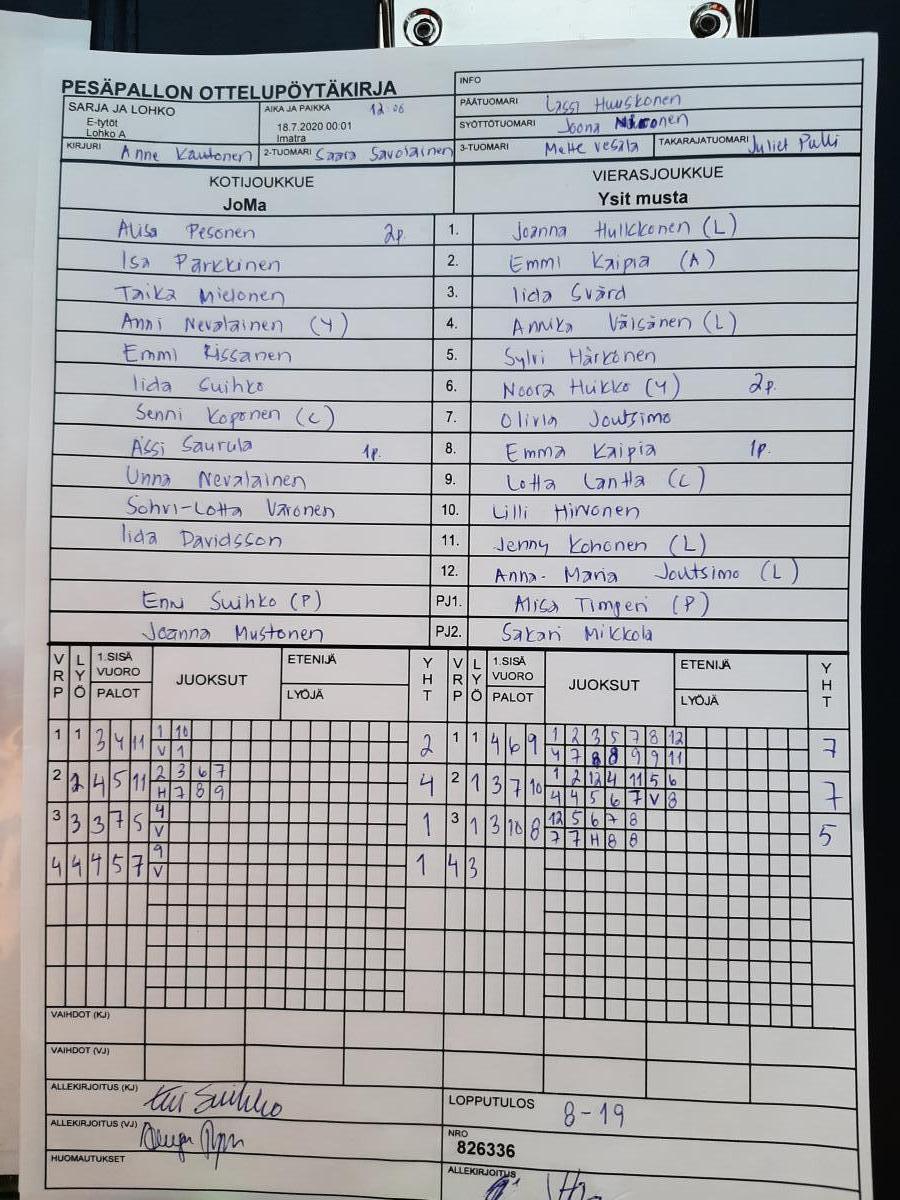 PESÄPALLON OTTELUPÖYTÄKIRJA
INFO
SARJA JA LOHKO
E-tytöt
Lohko A
AIKA JA PAIKKA 12.06
18.7.2020 00:01
Imatra
PÄÄTUOMARI Lassi Huuskonen
SYÖTTÖTUOMARI Joona
KIRJURI Anne Kautonen
2-TUOMARI Saara Savolainen
3-TUOMARI Mette Vesala
TAKARAJATUOMARI Juliet Pulli
KOTIJOUKKUE VIERASJOUKKUE
JoMa Ysit musta
Alisa Pesonen 2p. 1. Joanna Hulkkonen (L)
Isa Parkkinen 2. Emmi Kaipia (A)
Taika Mielonen 3. Iida Svärd
Anni Nevalainen (Y) 4. Annika Väisänen (L)
Emmi Rissanen 5. Sylvi Härkönen
Iida Suihko 6. Noora Huikko (Y) 2p.
Senni Koponen (C) 7. Olivia Joutsimo
Ässi Saurula 1p. 8. Emma Kaipia 1p.
Unna Nevalainen 9. Lotta Lantta (C)
Sohvi-Lotta Varonen 10. Lilli Hirvonen
Iida Davidsson 11. Jenny Kohonen (L)
12. Anna-Maria Joutsimo (L)
Enni Suihko (P) PJ1. Alisa Timperi (P)
Joanna Mustonen PJ2. Sakari Mikkola
VRP LYÖ 1.SISÄ VUORO PALOT JUOKSUT ETENIJÄ LYÖJÄ YHT VRP LYÖ 1.SISÄ VUORO PALOT JUOKSUT ETENIJÄ LYÖJÄ YHT
1 1 3 4 11 1 10 2 1 1 4 6 9 1 2 3 5 7 8 12 7
V 1 4 7 8 8 9 9 11
2 2 4 5 11 2 3 6 7 4 2 1 3 7 10 1 2 12 4 11 5 6 7
H 7 8 9 4 4 5 6 7 V 8
3 3 3 7 5 4 1 3 1 3 10 8 12 5 6 7 8 5
V 7 7 H 8 8
4 4 4 5 7 9 1 4 3
V
VAIHDOT (KJ)
VAIHDOT (VJ)
ALLEKIRJOITUS (KJ) Suihko
LOPPUTULOS 8-19
ALLEKIRJOITUS (VJ)
NRO
826336
HUOMAUTUKSET
ALLEKIRJOITUS